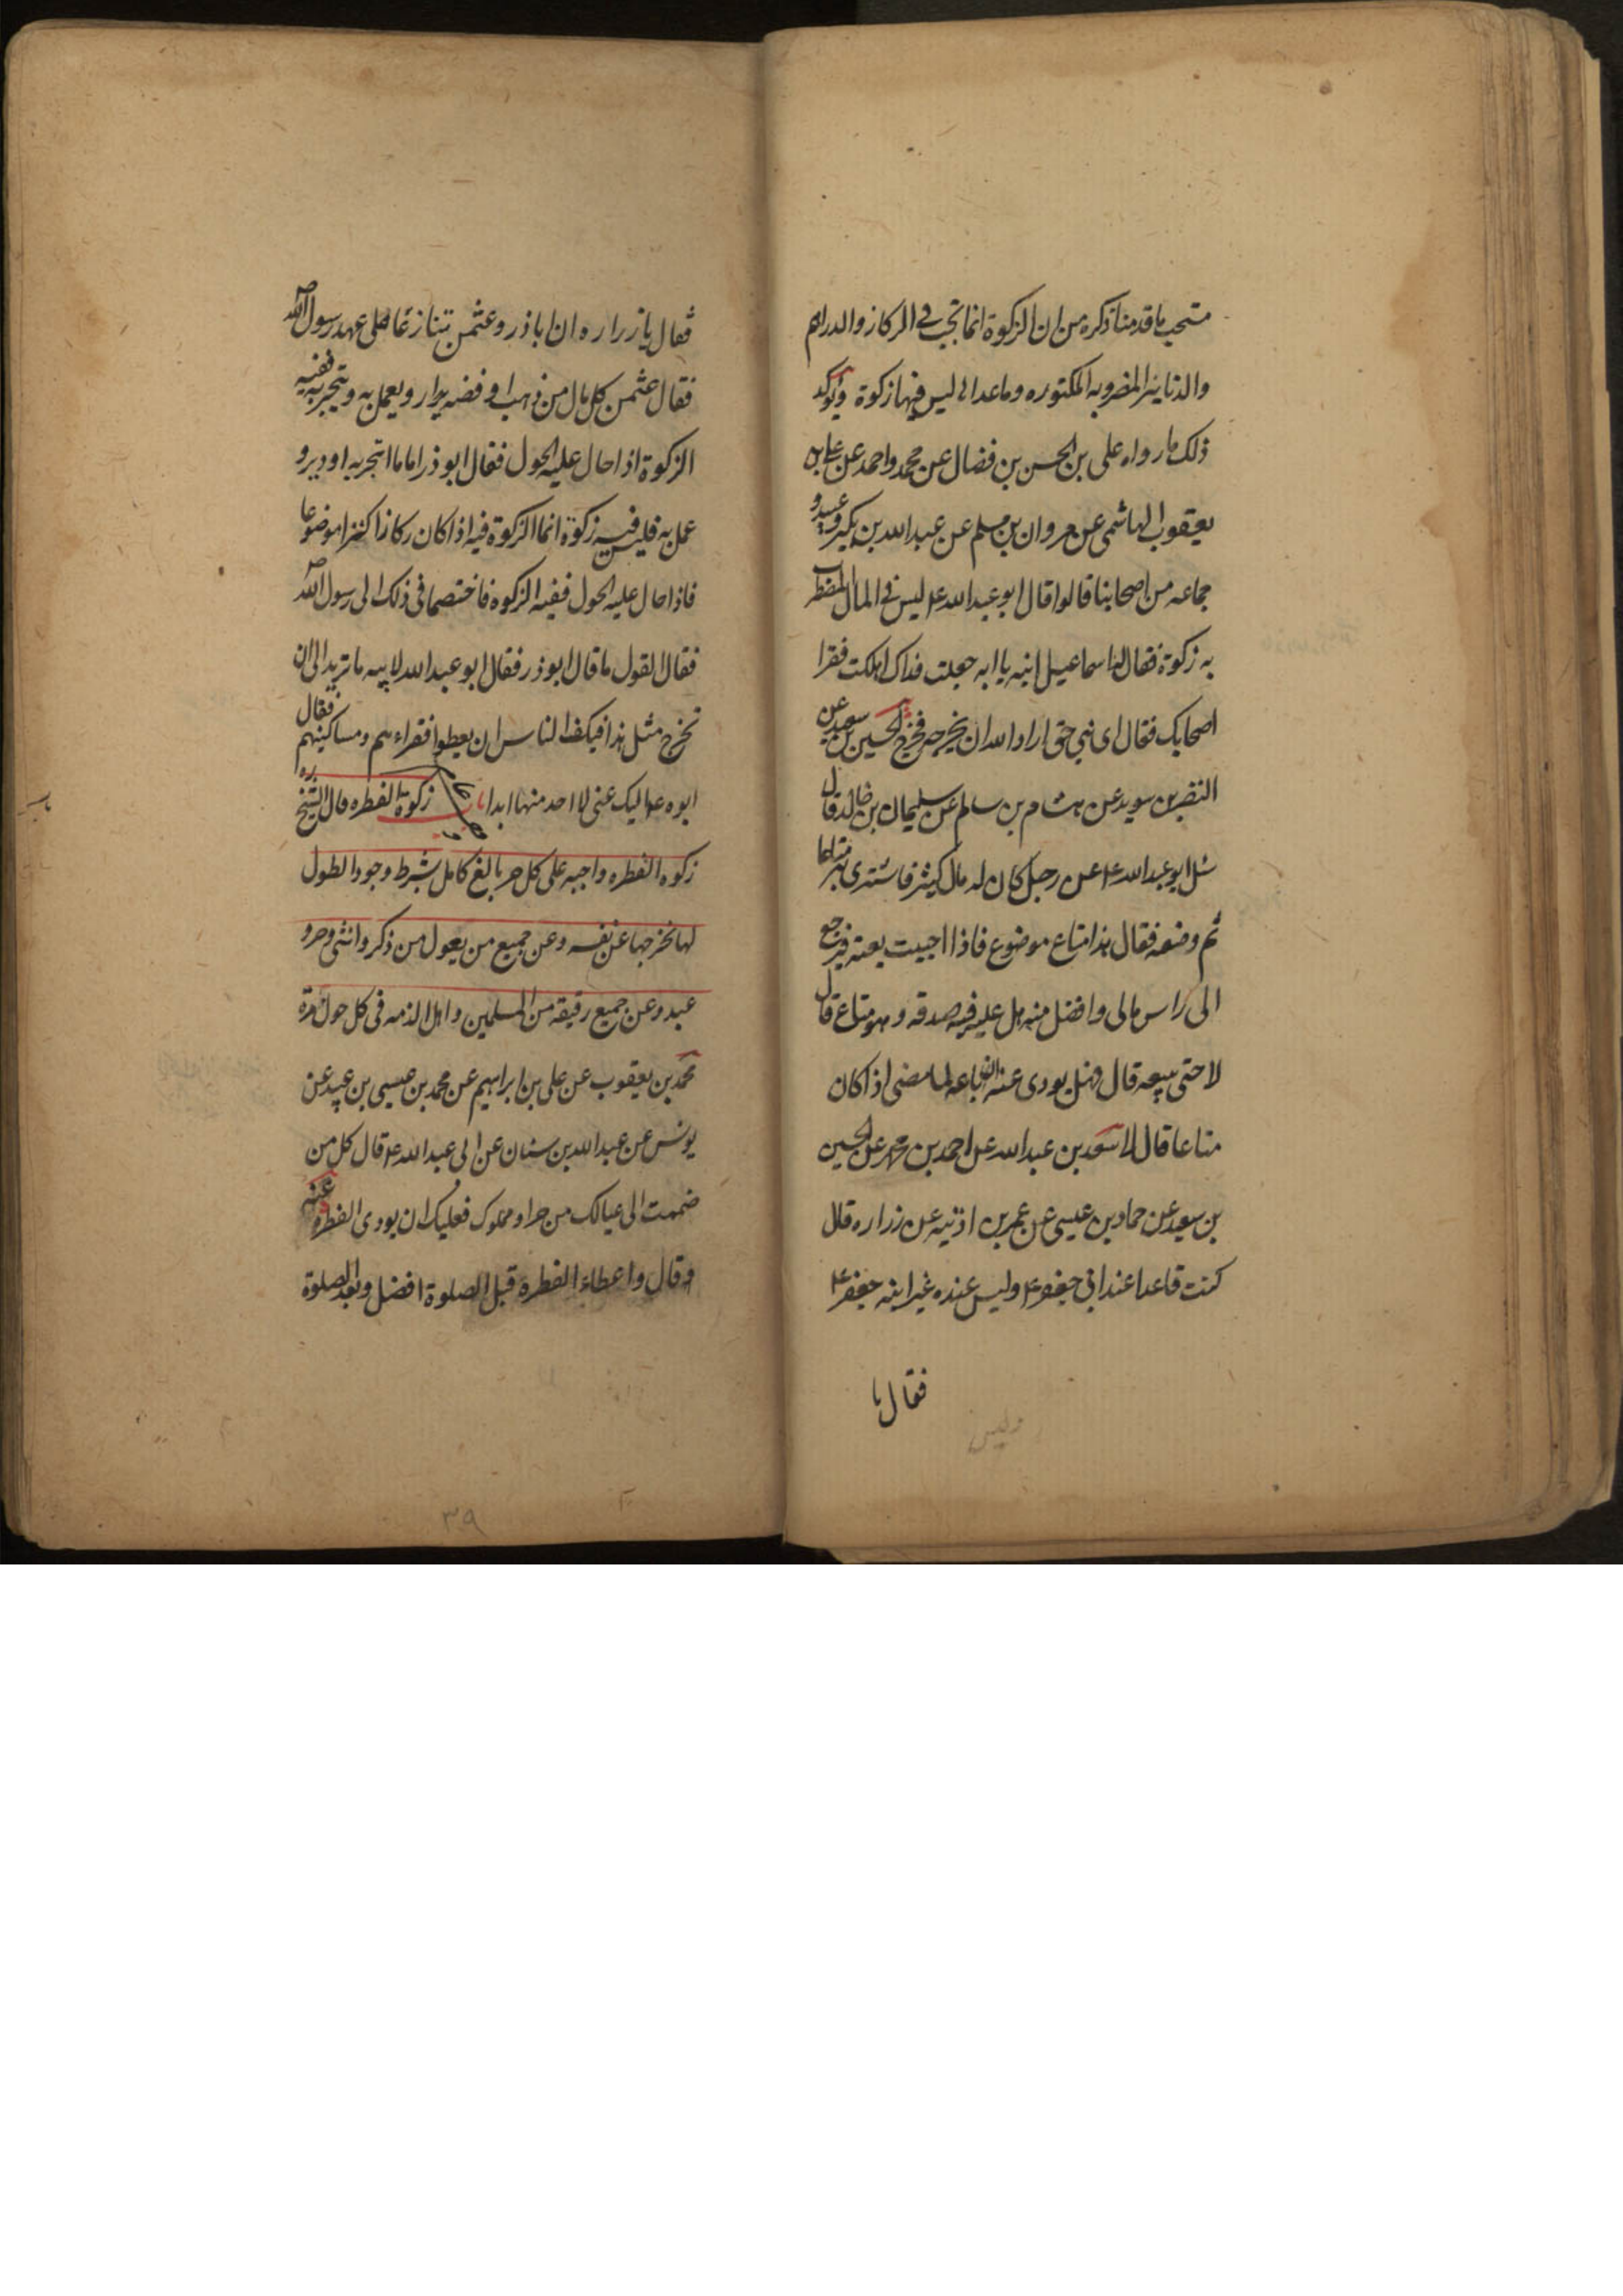 مستحب ما قدمنا ذكره من ان الزكوة انما تجب فى الركاز والدراهم
والدنانير المضروبه المكنوره وما عداها ليس فيها زكوة ويؤكد
ذلك ما رواه على بن الحسن بن فضال عن محمد واحمد عن على بن
يعقوب الهاشمى عن مروان بن مسلم عن عبد الله بن بكير وعبيد و
جماعه من اصحابنا قالوا قال ابو عبد الله ع ليس فى المال المضطرب
به زكوة فقال له اسماعيل ابنه يا ابه جعلت فداك اهلكت فقرا
اصحابك فقال اى بنى حق اراد الله ان يخرجه فخرج الحسين بن سعيد عن
النضر بن سويد عن هشام بن سالم عن سليمان بن خالد قال
سئل ابو عبد الله ع عن رجل كان له مال كثير فاشترى به متاعا
ثم وضعه فقال هذا متاع موضوع فاذا احببت بعته فيرجع
الى راس مالى وافضل منه هل عليه فيه صدقه وهو متاع قال
لا حتى يبيعه قال فهل يودى عنه ان باعه لما مضى اذا كان
متاعا قال لا سعد بن عبد الله عن احمد بن محمد عن الحسين
بن سعيد عن حماد بن عيسى عن عمر بن اذنيه عن زراره قال
كنت قاعدا عند ابى جعفر ع وليس عنده غير ابنه جعفر ع
فقال يا
وليس
فقال يا زراره ان اباذر وعثمن تنازعا على عهد رسول الله ص
فقال عثمن كل مال من ذهب او فضه يدار ويعمل به ويتجر به ففيه
الزكوة اذا حال عليه الحول فقال ابو ذر اما ما اتجر به او دير و
عمل به فليس فيه زكوة انما الزكوة فيه اذا كان ركازا كنزا موضوعا
فاذا حال عليه الحول ففيه الزكوه فاختصما فى ذلك الى رسول الله ص
فقال القول ما قال ابو ذر فقال ابو عبد الله لابيه ما تريد الى ان
تخرج مثل هذا فيكف الناس ان يعطوا فقراءهم ومساكينهم فقال
ابوه ع اليك عنى لا احد منها ابدا باب زكوة الفطره قال الشيخ ره
زكوه الفطره واجبه على كل حر بالغ كامل بشرط وجود الطول
لها يخرجها عن نفسه وعن جميع من يعول من ذكر وانثى وحر و
عبد وعن جميع رقيقه من المسلمين واهل الذمه فى كل حول مرة
محمد بن يعقوب عن على بن ابراهيم عن محمد بن عيسى بن عبيد عن
يونس عن عبد الله بن سنان عن ابى عبد الله ع قال كل من
ضممت الى عيالك من حر او مملوك فعليك ان يودى الفطره عنه
وقال واعطاء الفطرة قبل الصلوة افضل وبعد الصلوة
۳۹